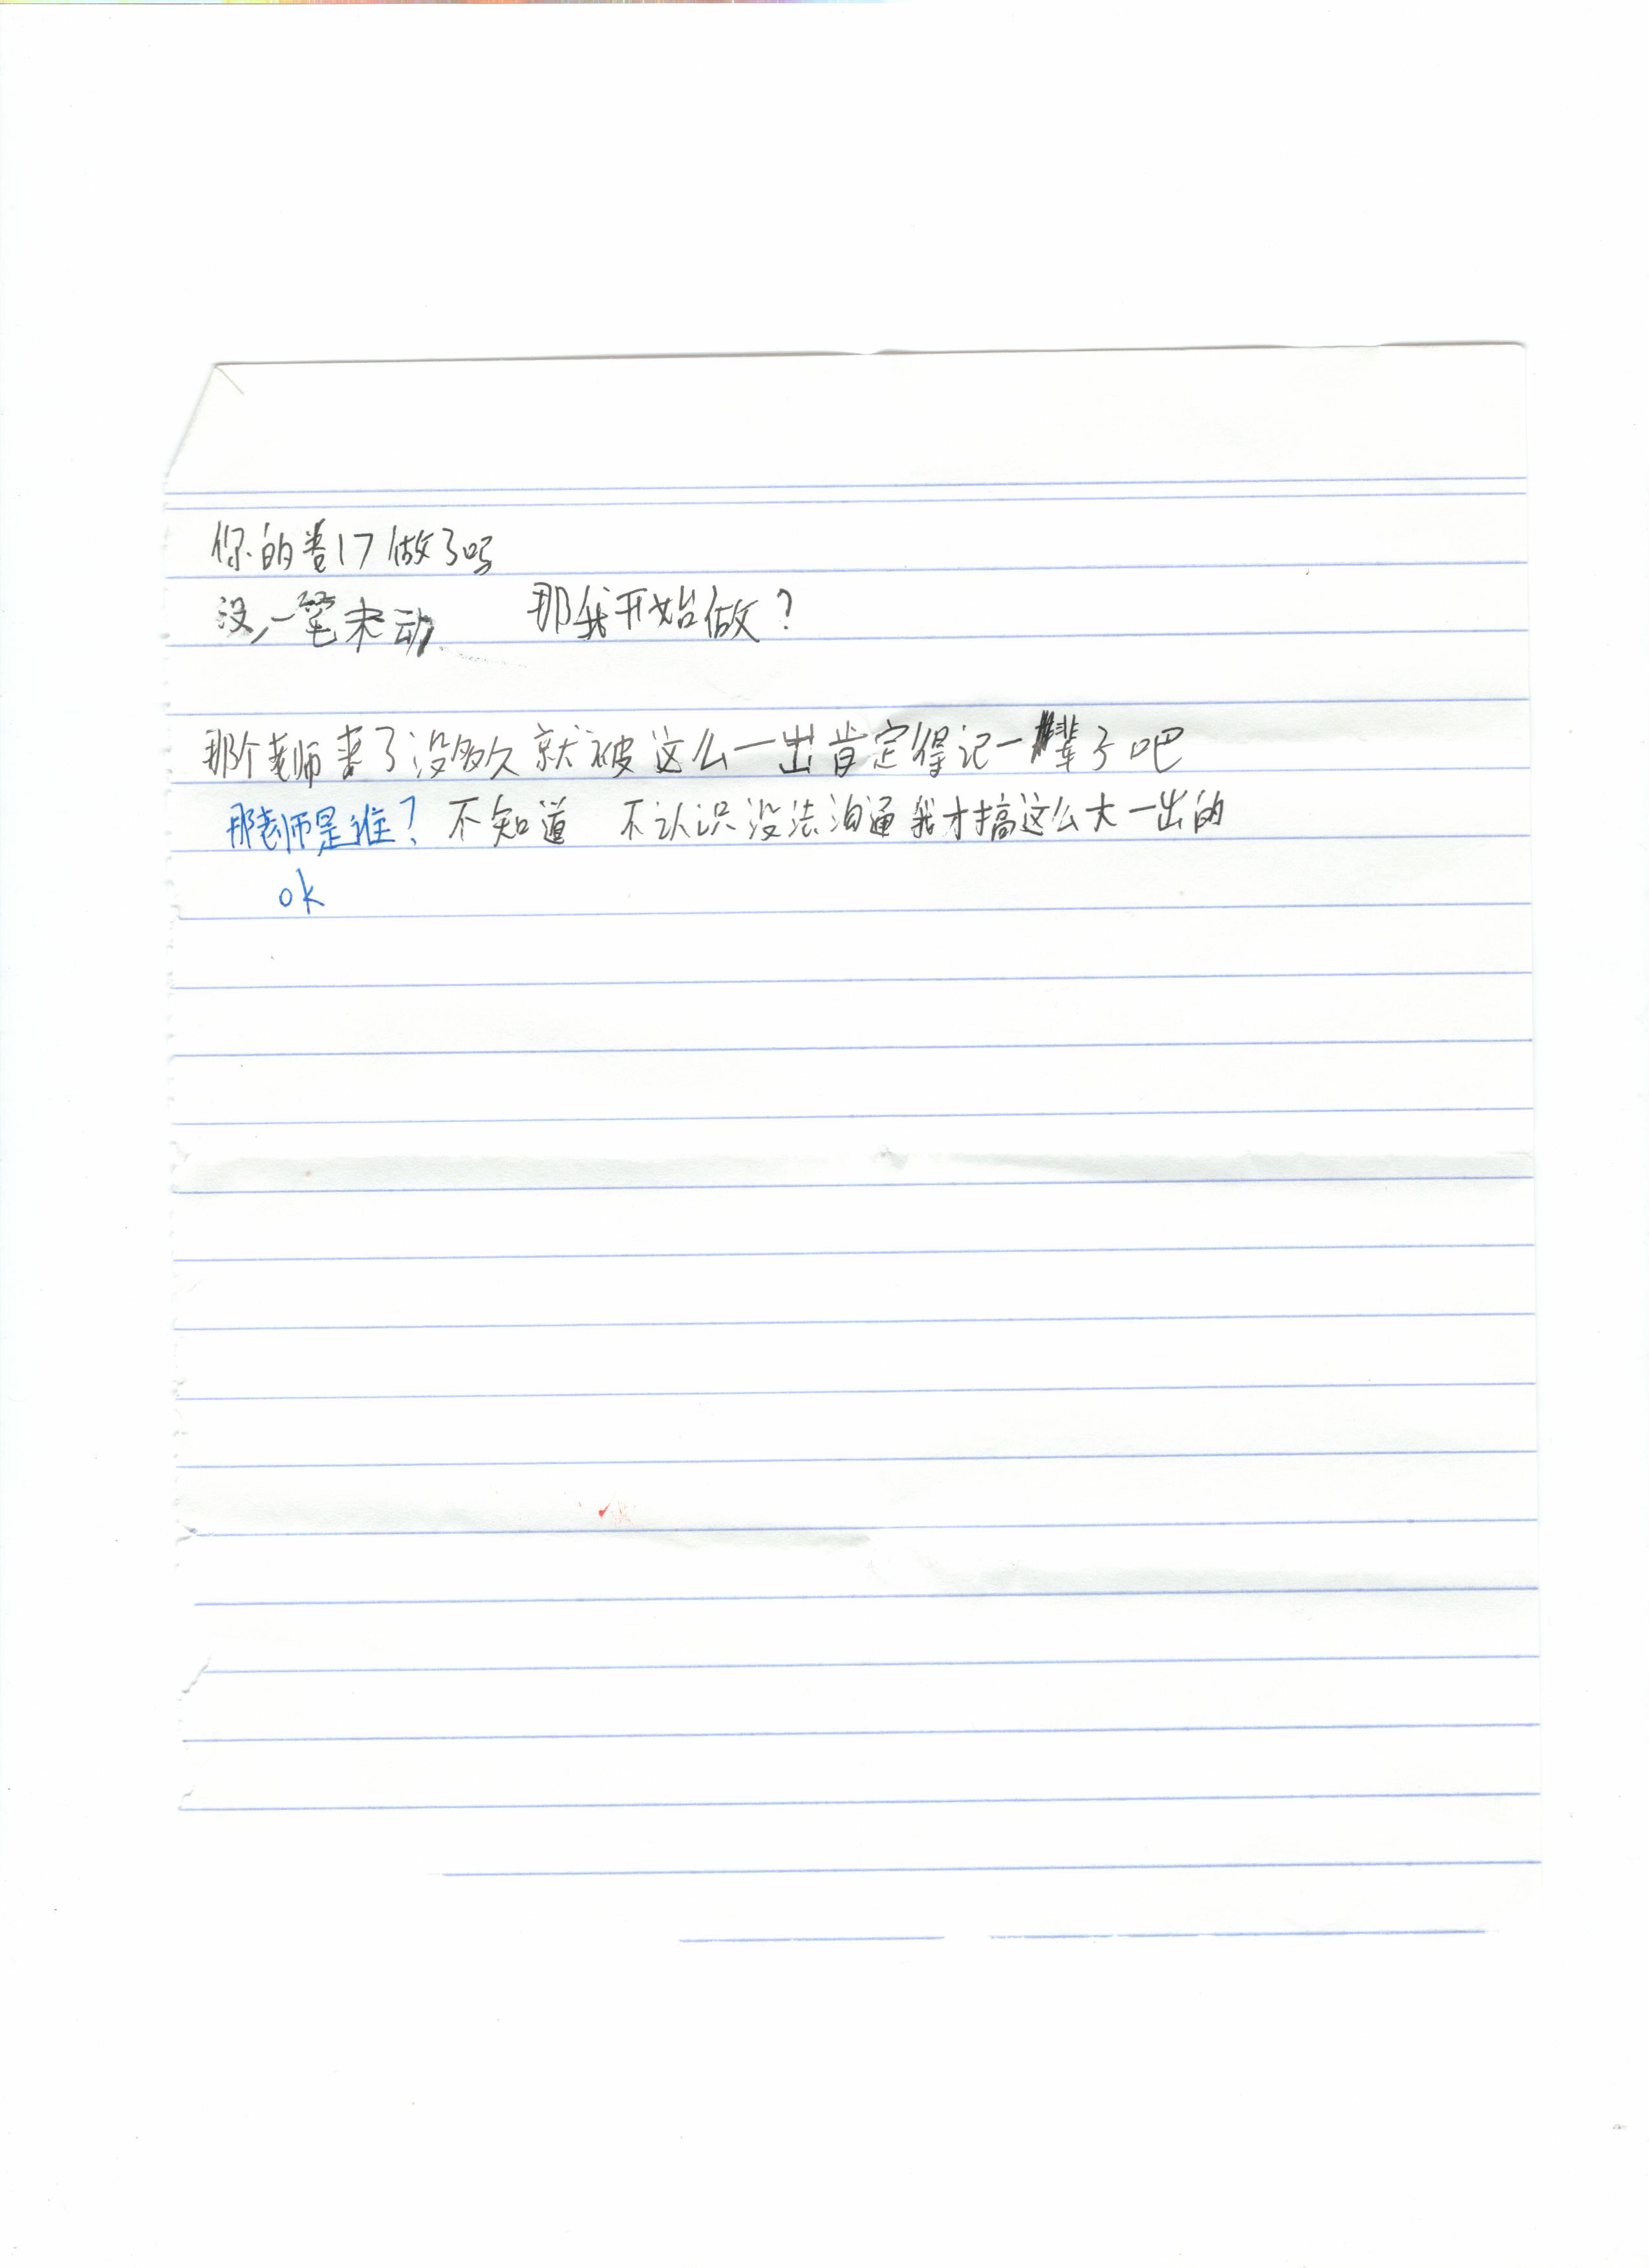 你的卷17做了吗
没,一笔未动 那我开始做?
那个老师来了没多久就被这么一出肯定得记一辈子吧
那老师是谁? 不知道 不认识没法沟通我才搞这么大一出的
ok